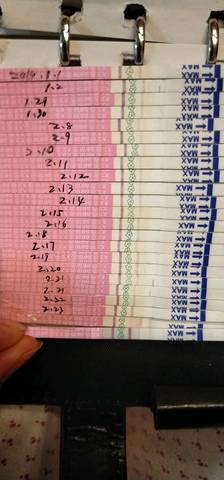 2014.1.1
1.2
1.29
1.30
2.8
2.9
2.10
2.11
2.12
2.13
2.14
2.15
2.16
2.18
2.17
2.19
2.20
2.21
2.21
2.22
2.23
MAX
MAX
MAX
MAX
MAX
MAX
MAX
MAX
MAX
MAX
MAX
MAX
MAX
MAX
MAX
MAX
MAX
MAX
MAX
MAX
MAX